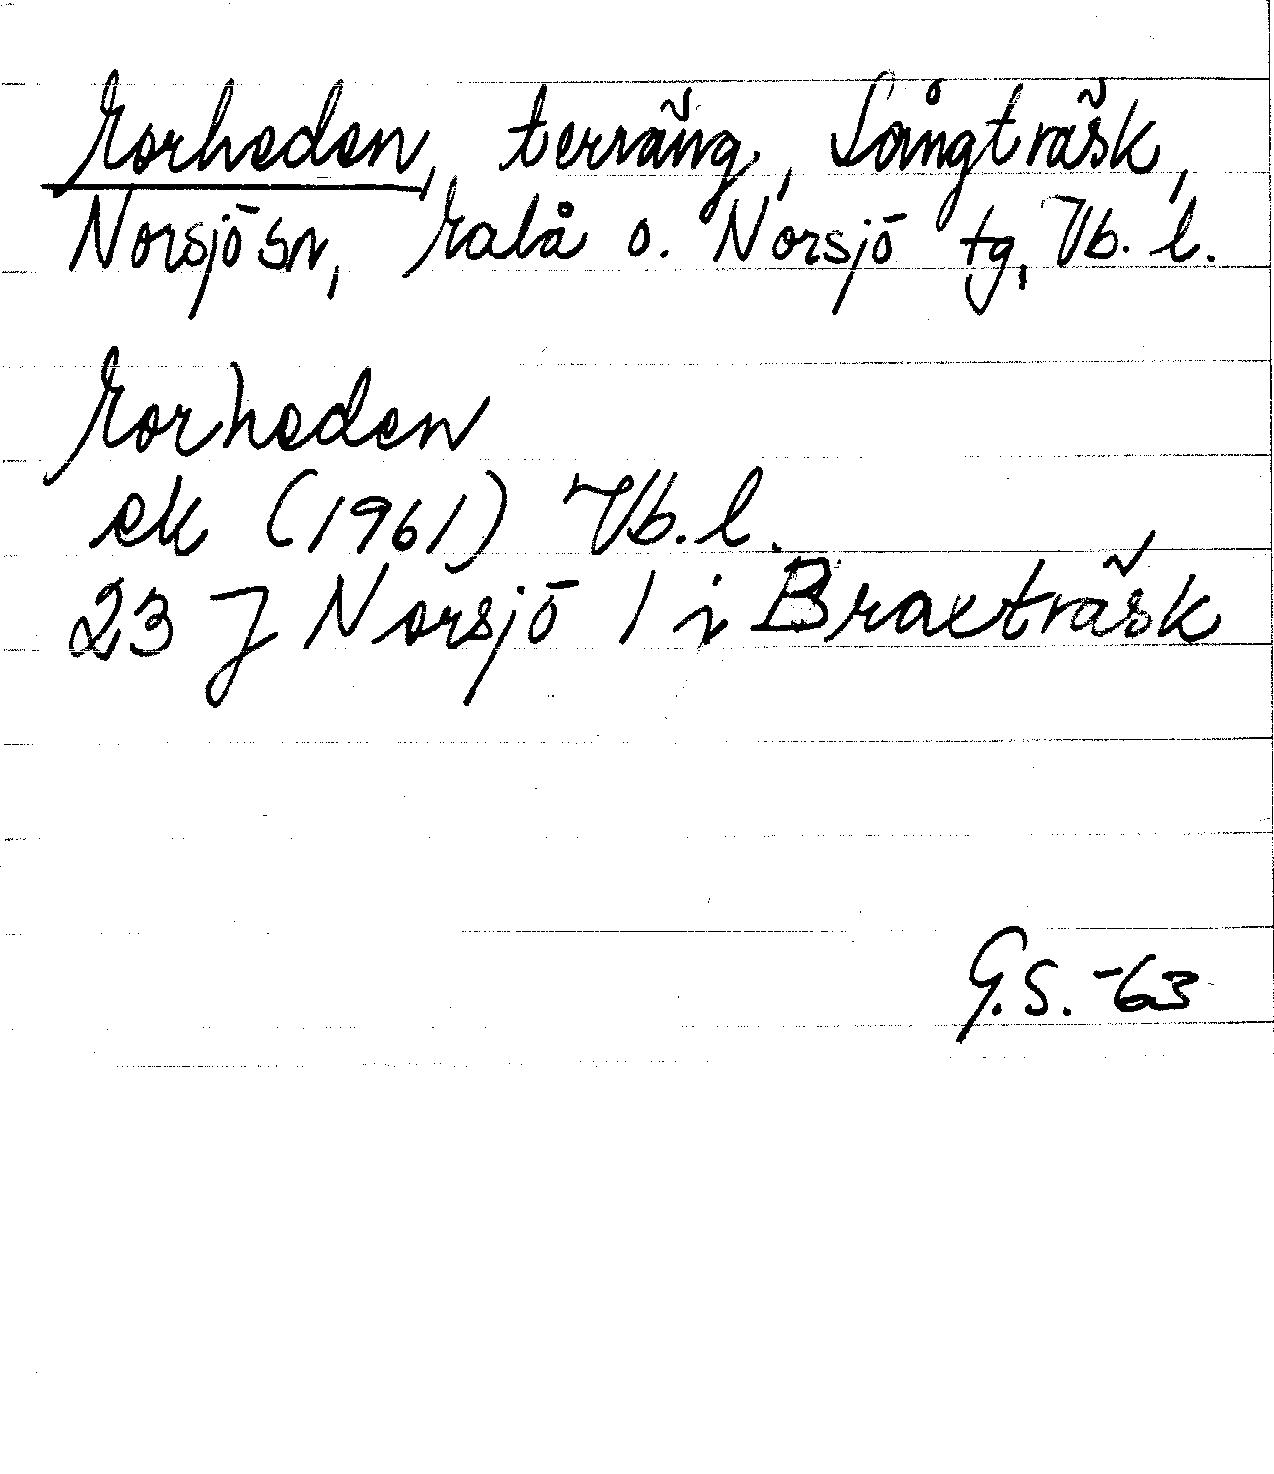 Morheden, terräng, Långträsk,
Norsjö sn, Malå o. Norsjö tg, Vb. l.
Morheden
ek (1961) Vb. l.
23 J Norsjö 1 i Braxträsk
G.S. -63